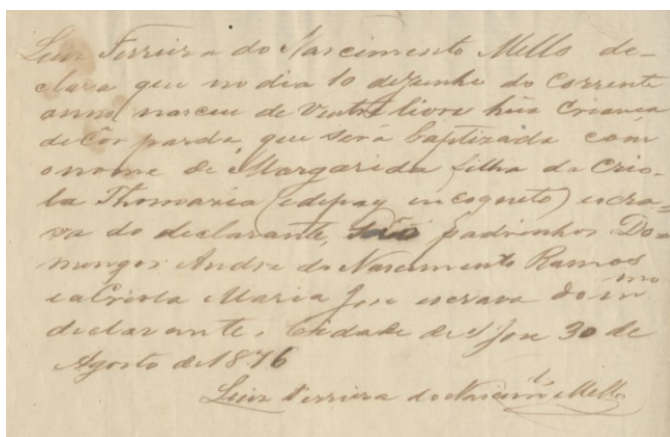 Luiz Ferreira do Nascimento Mello de-
clara que no dia 10 de Junho do Corrente
anno, nasceu de Ventre livre hua Criança
de Côr parda, que será baptizada com
o nome de Margarida filha da Crio-
la Thomazia (e de pay incogneto) escra-
va do declarante, são padrinhos Do-
mingos Andre do Nascimento Ramos
e a Criola Maria Jose escrava do mmo
declarante. Cidade de S Jose 30 de
Agosto de 1876
Luiz Ferreira do Nascimto Mello